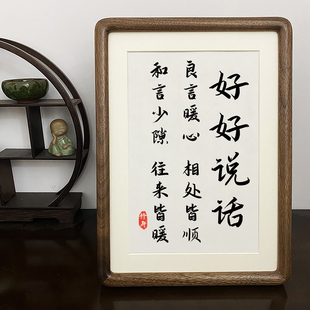 好好说话
良言暖心 相处皆顺
和言少隙 往来皆暖